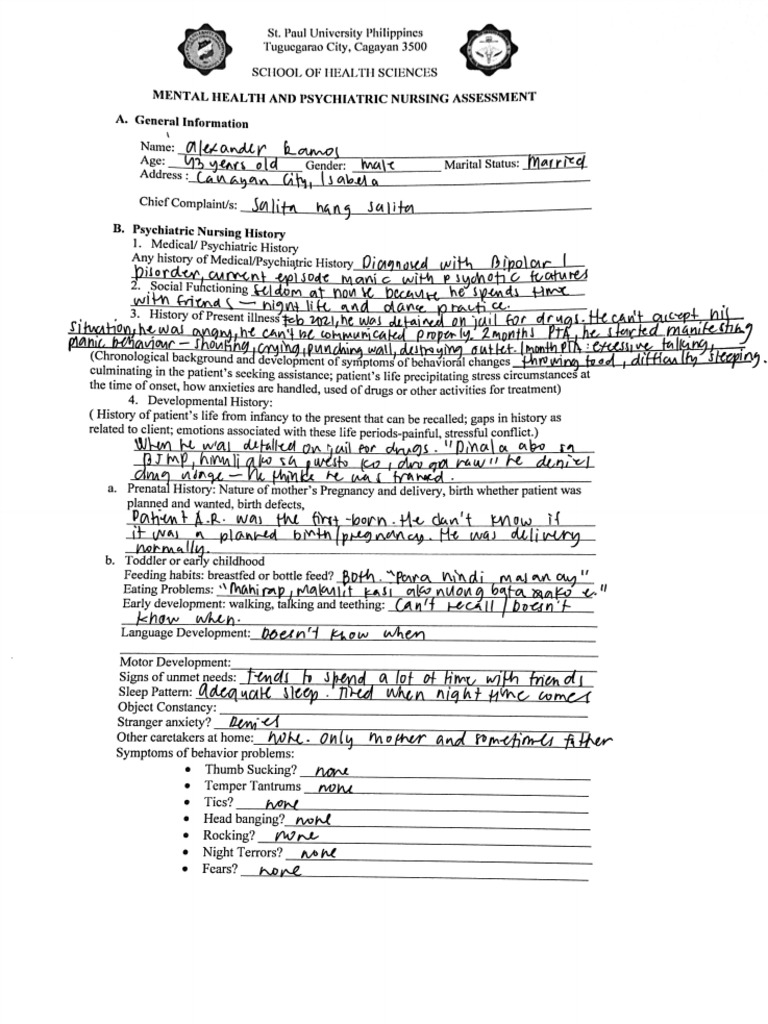 St. Paul University Philippines
Tuguegarao City, Cagayan 3500
SCHOOL OF HEALTH SCIENCES
MENTAL HEALTH AND PSYCHIATRIC NURSING ASSESSMENT
A. General Information
Name: Alexander Ramos
Age: 43 years old Gender: Male Marital Status: Married
Address : Cauayan City, Isabela
Chief Complaint/s: Salita nang salita
B. Psychiatric Nursing History
1. Medical/ Psychiatric History
Any history of Medical/Psychiatric History Diagnosed with Bipolar I
Disorder, current episode manic with psychotic features
2. Social Functioning Seldom at house because he spends time
with friends – night life and dance practice.
3. History of Present illness Feb 2021, he was detained on jail for drugs. He can't accept his
situation, he was angry, he can't be communicated properly. 2 months PTA, he started manifesting
panic behaviour – shouting, crying, punching wall, destroying outlet. 1 month PTA: excessive talking,
(Chronological background and development of symptoms of behavioral changes throwing food, difficulty sleeping.
culminating in the patient's seeking assistance; patient's life precipitating stress circumstances at
the time of onset, how anxieties are handled, used of drugs or other activities for treatment)
4. Developmental History:
( History of patient's life from infancy to the present that can be recalled; gaps in history as
related to client; emotions associated with these life periods-painful, stressful conflict.)
When he was detailed on jail for drugs. "Dinala ako sa
BJMP, hinuli ako sa pwesto ko, droga raw" he denies
drug usage – He thinks he was framed.
a. Prenatal History: Nature of mother's Pregnancy and delivery, birth whether patient was
planned and wanted, birth defects,
Patient A.R. was the first-born. He don't know if
it was a planned birth/pregnancy. He was delivery
normally.
b. Toddler or early childhood
Feeding habits: breastfed or bottle feed? Both. "Para hindi masanay"
Eating Problems: "Mahirap, makulit kasi ako nuong bata mako e."
Early development: walking, talking and teething: Can't recall / doesn't
know when.
Language Development: Doesn't know when
Motor Development:
Signs of unmet needs: Tends to spend a lot of time with friends
Sleep Pattern: Adequate sleep. Tired when night time comes
Object Constancy:
Stranger anxiety? Denies
Other caretakers at home: None. Only mother and sometimes father
Symptoms of behavior problems:
• Thumb Sucking? none
• Temper Tantrums none
• Tics? none
• Head banging? none
• Rocking? none
• Night Terrors? none
• Fears? none